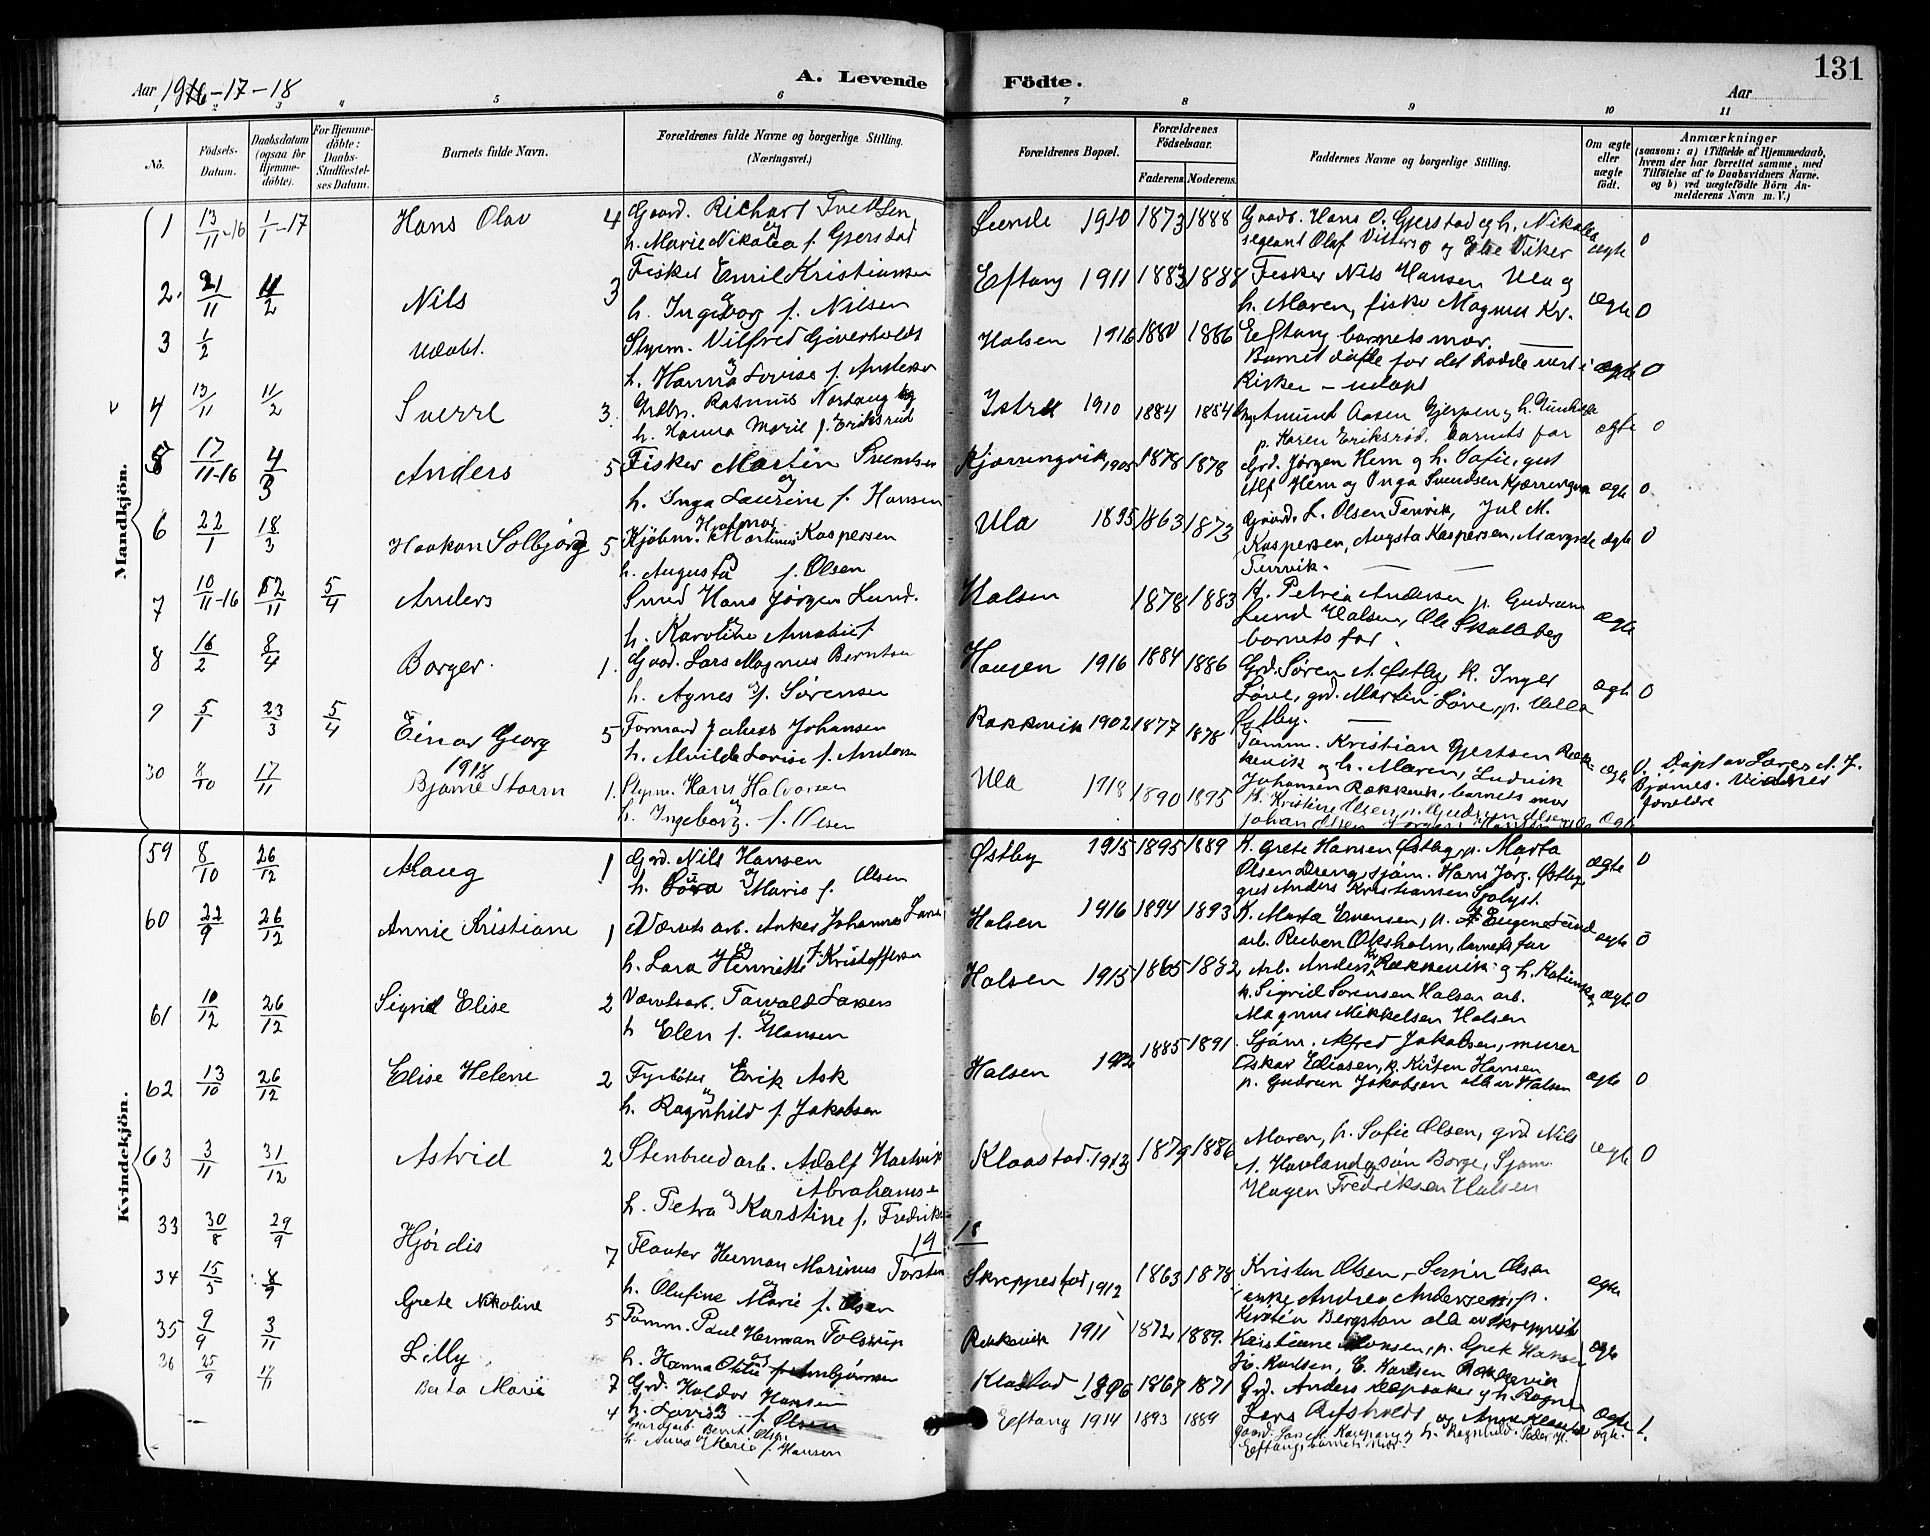 131
Aar 1916-17-18
A. Levende Födte.
Aar
1 2 3 4 5 6 7 8 9 10 11
No.
Födsels-Datum.
Daabsdatum (ogsaa for Hjemme-döbte).
For Hjemme-döbte: Daabs-Stadfæstel-ses Datum.
Barnets fulde Navn.
Forældrenes fulde Navne og borgerlige Stilling. (Næringsvei.)
Forældrenes Bopæl.
Forældrenes Födselsaar.
Faderens. Moderens.
Faddernes Navne og borgerlige Stilling.
Om ægte eller uægte födt.
Anmærkninger
(saasom: a) i Tilfælde af Hjemmedaab, hvem der har forrettet samme, med Tilföielse af to Daabsvidners Navne, og b) ved uægtefödte Börn An-melderens Navn m. V.)
Mandkjön.
1 13/11-16 1/1-17 Hans Olav 4 Gaard. Richart Tvedten og Leende 1910 1873 1888 Gaardb. Hans O. Gjerstad og h. Nikolea
h. Marie Nikolea f. Gjerstad sergeant Olaf Vittersø og Else Viker ægte 0
2. 21/11 11/2 Nils 3 Fisker Emil Kristiansen Eftang 1911 1883 1888 Fisker Nils Hansen Ula og
h. Ingeborg f. Nilsen h. Maren, fisker Magnus Kr. ægte 0
Eftang barnets mor.
3 1/2 Udøbt. Styrm. Vilfred Giverholdt Halsen 1916 1880 1886 Barnet døde før det hadde vært i ægte 0
h. Hanna Lovise f. Andersen Kirken - udøpt
4 13/11 11/2 Sverre 3. Grdbr. Rasmus Nordang og Istre 1910 1884 1884 Amund Aasen Gjerpen og h. Gunhild
h. Hanna Marie f. Eriksrød p. Karen Eriksrød, barnets far ægte 0
5 17/11-16 4/3 Anders 5 Fisker Martin Svendsen Kjærringvik 1905 1878 1878 Grd. Jørgen Hem og h. Sofie, gut
h. Inga Laurine f. Hansen Alf Hem og Inga Svendsen Kjærringvik ægte 0
6 22/1 18/3 Haakon Solbjørg 5 Kjøbm. Hjalmar Martinius Kaspersen Ula 1895 1863 1873 Gaard. L. Olsen Tenvik, Jul M.
h. Augusta f. Olsen Kaspersen, Augusta Kaspersen, Margrete ægte 0
Tenvik.
7 10/11-16 12/11 5/4 Anders Smed Hans Jørgen Lund. Halsen 1878 1883 K. Petria Andersen p. Gudrun
h. Karoline Amalie f. Lund Halsen, Ole Skalleberg ægte
barnets far.
8 16/2 8/4 Borger. 1. Gaard. Lars Magnus Berntsen Haugen 1916 1884 1886 Grd. Søren A. Østby K. Inger
h. Agnes f. Sørensen Løve, grd. Martin Løve, p. Ulla ægte 0
Østby.
9 5/1 23/3 5/4 Einar Georg 5 Formand Julius Johansen Rakkevik 1902 1877 1878 Tømm. Kristian Gjertsen Rak-
h. Alvilde Lovise f. Andersen kevik og h. Maren, Ludvik ægte 0.
Johansen Rakkevik, barnets mor
30 8/10 17/11 1918 Bjarne Storm 1. Styrm. Hans Halvorsen Ula 1918 1890 1895 K. Kristine Olsen p. Gudrun Olsen
h. Ingeborg f. Olsen Johan Olsen ægte Døpt av Lærer A. J. Bjørnes. Vidner forældre
Kvindekjön.
59 8/10 26/12 Aslaug 1 Grd. Nils Hansen Østby 1915 1895 1889 K. Grete Hansen Østby, p. Marta
h. Marie f. Olsen Olsen Dreng, sjøm. Hans Jørg. Østby ægte 0
Anders Kristiansen Solyst.
60 22/9 26/12 Annie Kristiane 1 Værvts arb. Anker Johannes Larsen Halsen 1916 1894 1893 K. Marta Evensen, p. Eugen Lund
h. Lara Henriette f. Kristoffersen arb. Reuben Oksholm, barnets far ægte 0
61 10/12 26/12 Sigrid Elise 2 Værvtsarb. Torvald Larsen Halsen 1915 1865 1882 Arb. Anders Rakkevik og h. Katinka,
h Elen f. Hansen k. Sigrid Sørensen Halsen arb. ægte 0
Magnus Mikkelsen Halsen
62 13/10 26/12 Elise Helene 2 Fyrbøter Erik Ask Halsen 1912 1885 1891 Sjøm. Alfred Jakobsen, murer
h. Ragnhild f. Jakobsen Oskar Ediasen, k. Kirsten Hansen
p. Gudrun Jakobsen alle av Halsen ægte 0
63 3/11 31/12 Astrid 2 Stenbrudarb. Adolf Hartvik Abrahamsen Klaastad 1913 1879 1886 Maren, p. Sofie Olsen, grd Nils
h. Petra Karstine f. Fredriksen A. Havland og søn Borge, Sjøm. ægte 0
Hagen Fredriksen Halsen
1918
33 30/8 29/9 Hjørdis 7 Herman Marinus Torsten Skreppestad 1912 1863 1878 Kristen Olsen, Serine Olsen
h. Olufine Marie f. Olsen enke Andrea Andersen, p. ægte
Kirsten Bergstøn alle av Skreppestad
34 15/5 8/9 Grete Nikoline 5 Tømm. Paul Herman Tolstrup Rakkevik 1911 1872 1889. Kristiane Hansen, p. Grete Hansen
h. Hanna Otilie f. Ambjørnsen Jo. Karlsen, E. Karlsen Rakkevik ægte
35 9/9 3/11 Lilly 7 Grd. Haldor Hansen Klastad 1896 1867 1871 Grd. Anders Klepaker og h. Ragna
h. Lovise f. Olsen Lars Refsholdt og Anna Klaastad ægte
36 25/9 17/11 Berta Marie 4 Gaardarb. Bernt Olsen Eftang 1914 1893 1889 Gaard. Lars M. Kaupang og h. Ragnhild. Peder H. ægte 1.
h. Anna Marie f. Hansen Eftang, barnets mor